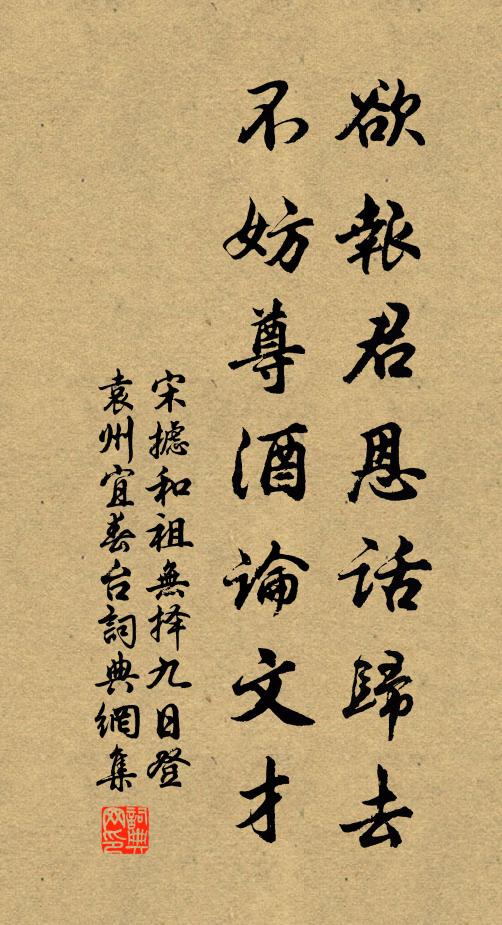 欲報君恩話歸去
不妨尊酒論文才
宋摅和祖無择九日登
袁州宜春台詞典網集
詞典网印